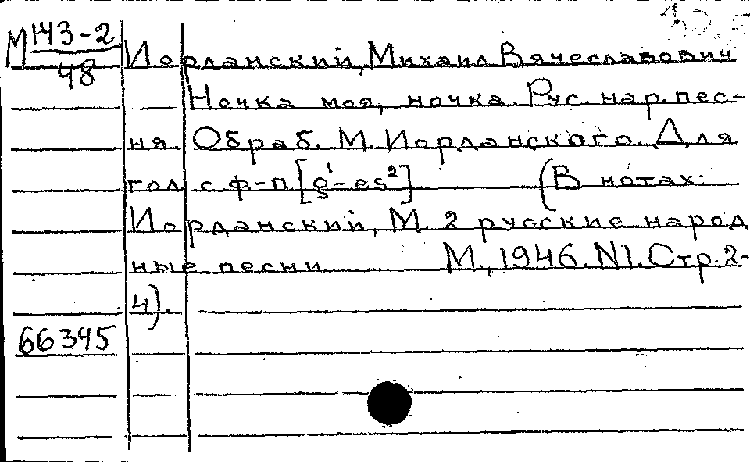 М 143-2
48
Иорданский, Михаил Вячеславович
Ночка моя, ночка. Рус. нар. пес-
ня. Обраб. М. Иорданского. Для
гол. с ф-п [g¹-es²] (В нотах:
Иорданский, М. 2 русские народ
ные песни М., 1946. N1. Стр. 2-
4).
66345